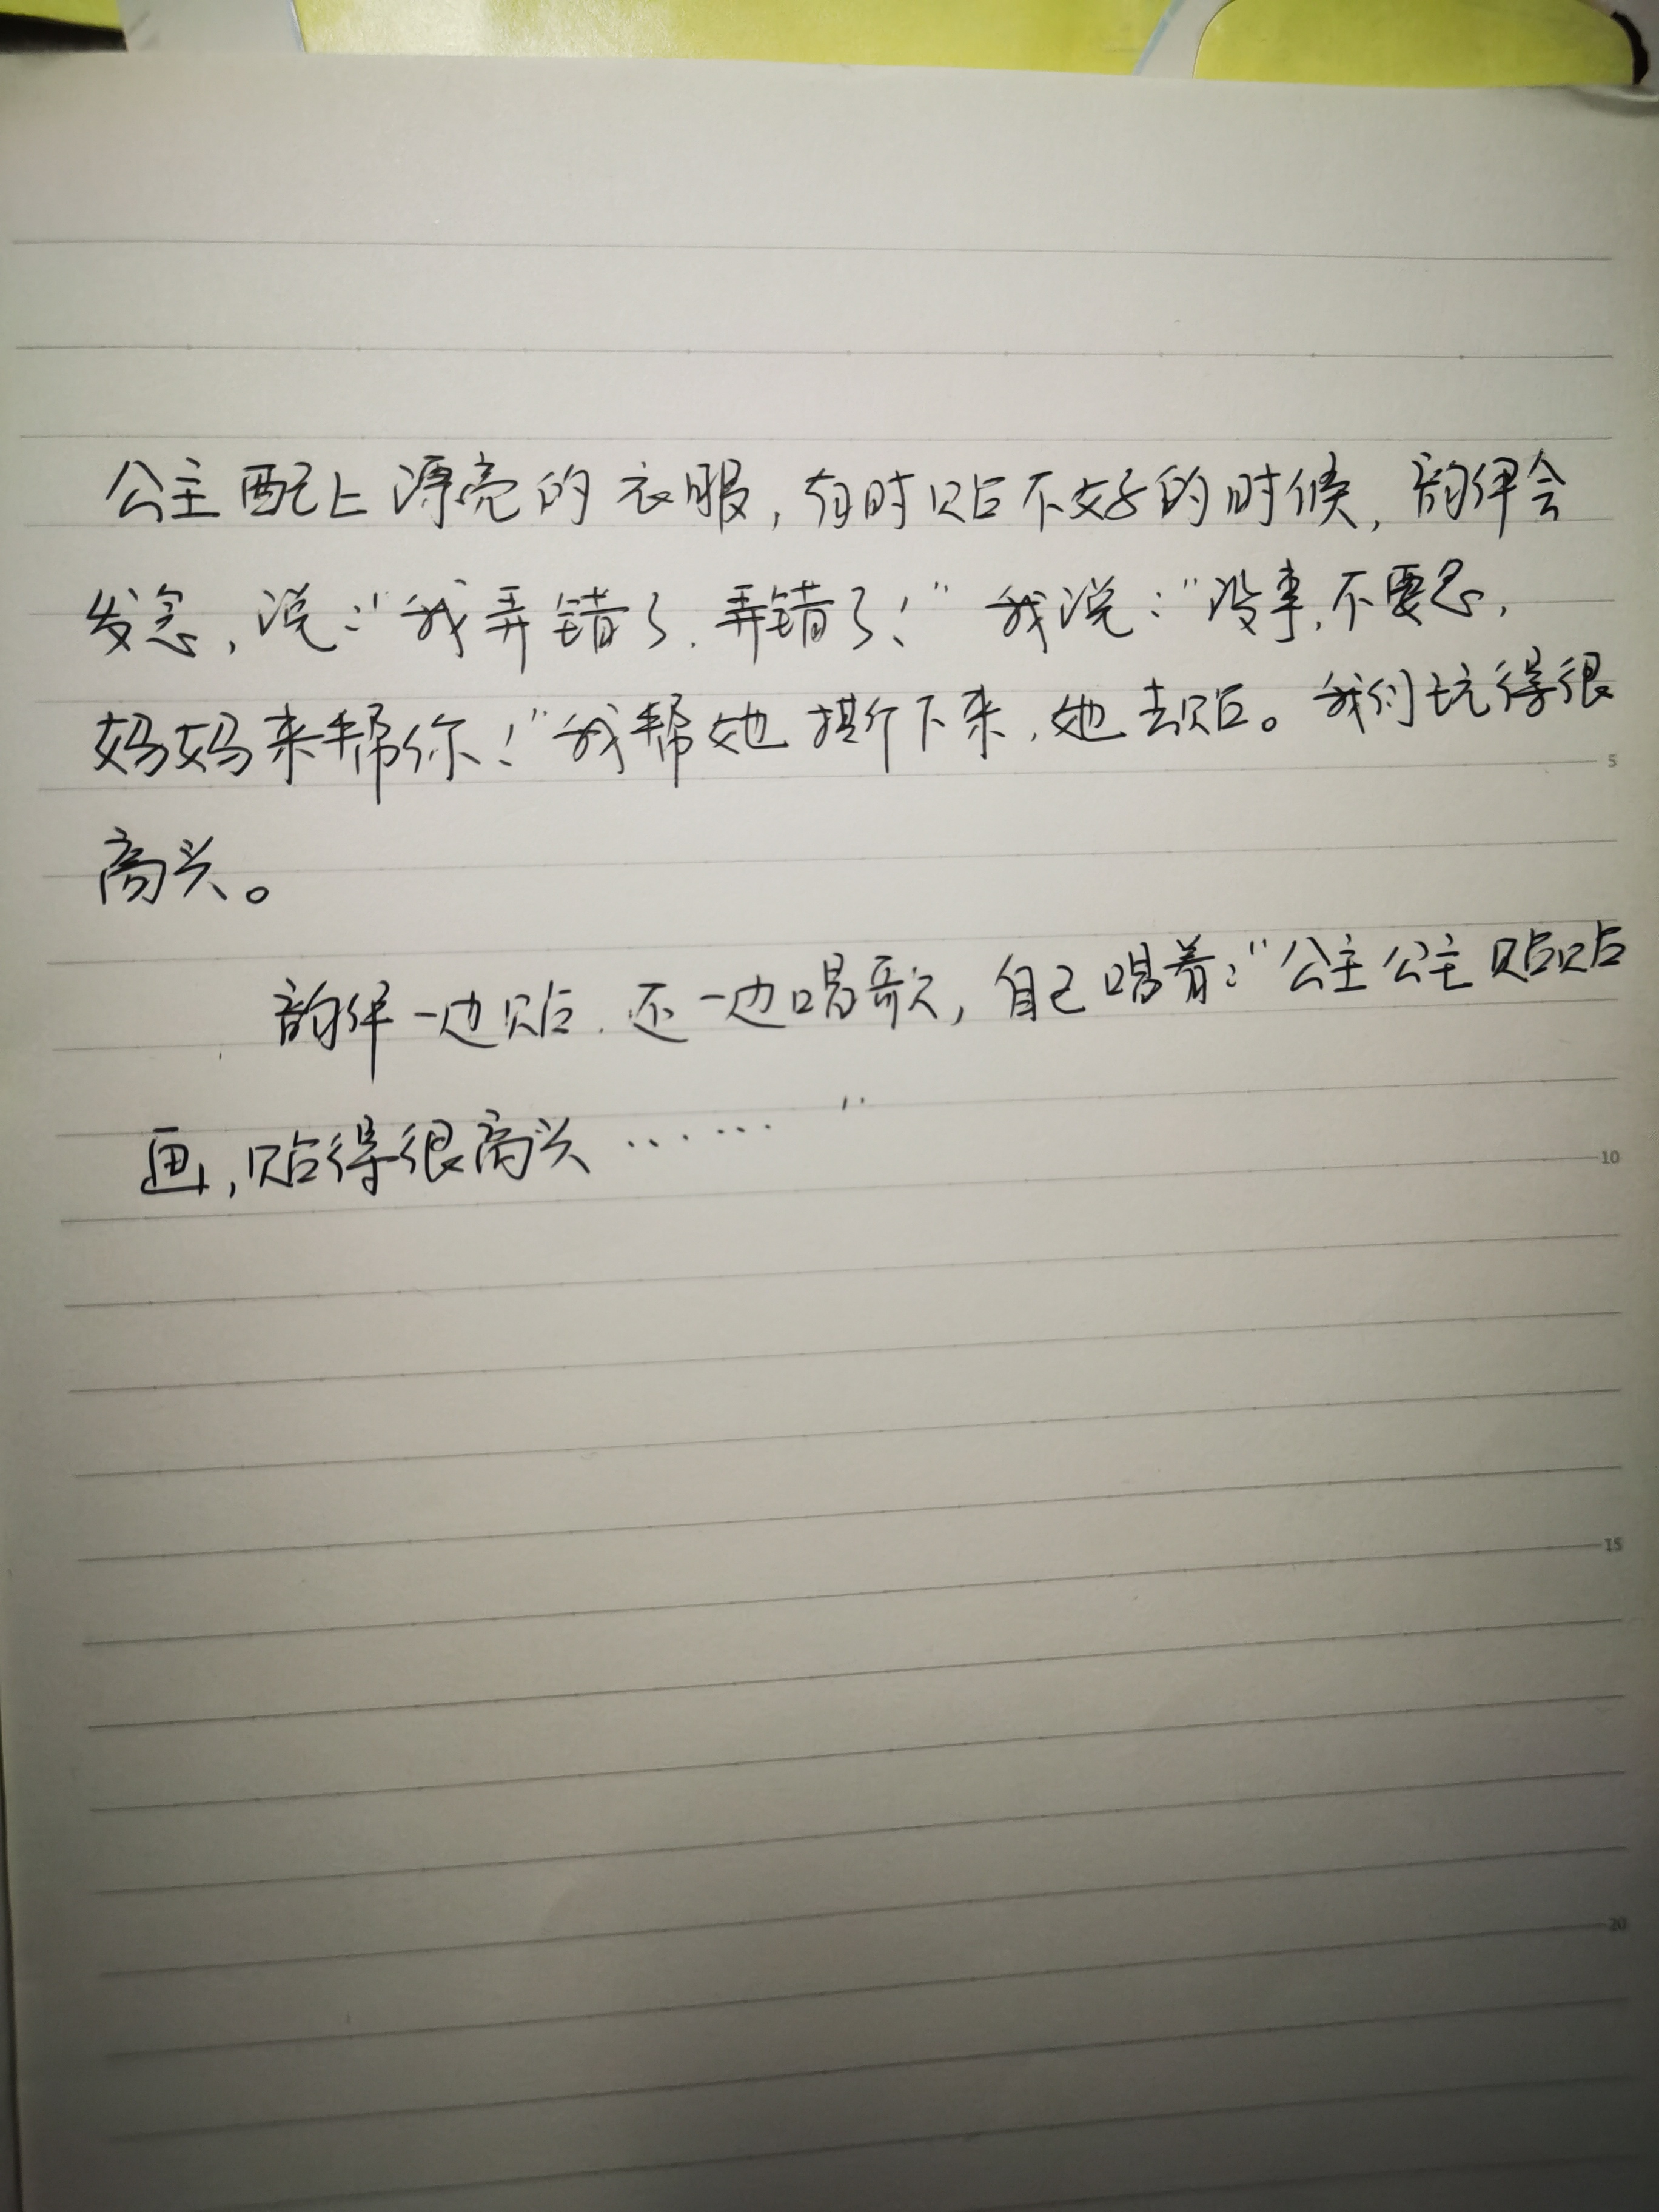 公主配上漂亮的衣服,有时贴不好的时候,韵伊会
发急,说:"我弄错了.弄错了!"我说:"没事,不要急,
妈妈来帮你!"我帮她撕下来,她去贴。我们玩得很
高兴。
韵伊一边贴.还一边唱歌,自己唱着:"公主公主贴贴
画,贴得很高兴……"
5
10
15
20